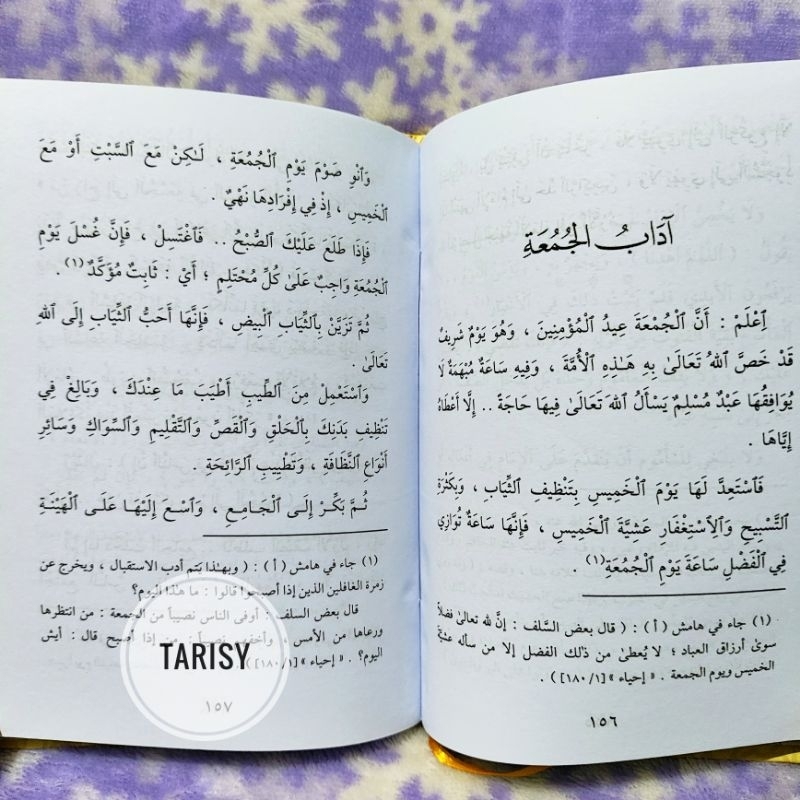 آدَابُ الجُمُعَةِ
اِعْلَمْ : أَنَّ ٱلْجُمُعَةَ عِيدُ ٱلْمُؤْمِنِينَ ، وَهُوَ يَوْمٌ شَرِيفٌ
قَدْ خَصَّ ٱللهُ تَعَالَىٰ بِهِ هَـٰذِهِ ٱلْأُمَّةَ ، وَفِيهِ سَاعَةٌ مُبْهَمَةٌ لَا
يُوَافِقُهَا عَبْدٌ مُسْلِمٌ يَسْأَلُ ٱللهَ تَعَالَىٰ فِيهَا حَاجَةً .. إِلَّا أَعْطَاهُ
إِيَّاهَا .
فَٱسْتَعِدَّ لَهَا يَوْمَ ٱلْخَمِيسِ بِتَنْظِيفِ ٱلثِّيَابِ ، وَبِكَثْرَةِ
ٱلتَّسْبِيحِ وَٱلِٱسْتِغْفَارِ عَشِيَّةَ ٱلْخَمِيسِ ، فَإِنَّهَا سَاعَةٌ تُوَازِي
فِي ٱلْفَضْلِ سَاعَةَ يَوْمِ ٱلْجُمُعَةِ(١) .
(١) جاء في هامش ( أ ) : ( قال بعض السَّلف : إنَّ لله تعالىٰ فضلاً
سوىٰ أرزاق العباد ؛ لا يُعطىٰ من ذلك الفضل إلا من سأله عشيَّة
الخميس ويوم الجمعة . « إحياء » [١/ ١٨٠] ) .
١٥٦
وَٱنْوِ صَوْمَ يَوْمِ ٱلْجُمُعَةِ ، لَـٰكِنْ مَعَ ٱلسَّبْتِ أَوْ مَعَ
ٱلْخَمِيسِ ، إِذْ فِي إِفْرَادِهَا نَهْيٌ .
فَإِذَا طَلَعَ عَلَيْكَ ٱلصُّبْحُ .. فَٱغْتَسِلْ ، فَإِنَّ غُسْلَ يَوْمِ
ٱلْجُمُعَةِ وَاجِبٌ عَلَىٰ كُلِّ مُحْتَلِمٍ ؛ أَيْ : ثَابِتٌ مُؤَكَّدٌ(١) .
ثُمَّ تَزَيَّنْ بِٱلثِّيَابِ ٱلْبِيضِ ، فَإِنَّهَا أَحَبُّ ٱلثِّيَابِ إِلَى ٱللهِ
تَعَالَىٰ .
وَٱسْتَعْمِلْ مِنَ ٱلطِّيبِ أَطْيَبَ مَا عِنْدَكَ ، وَبَالِغْ فِي
تَنْظِيفِ بَدَنِكَ بِٱلْحَلْقِ وَٱلْقَصِّ وَٱلتَّقْلِيمِ وَٱلسِّوَاكِ وَسَائِرِ
أَنْوَاعِ ٱلنَّظَافَةِ ، وَتَطْيِيبِ ٱلرَّائِحَةِ .
ثُمَّ بَكِّرْ إِلَى ٱلْجَامِعِ ، وَٱسْعَ إِلَيْهَا عَلَى ٱلْهَيْئَةِ
(١) جاء في هامش ( أ ) : ( وبهـٰذا يتم أدب الاستقبال ، ويخرج عن
زمرة الغافلين الذين إذا أصبحوا قالوا : ما هـٰذا اليوم؟
قال بعض السلف : أوفى الناس نصيباً من الجمعة : من انتظرها
ورعاها من الأمس ، وأخفهم نصيباً : من إذا أصبح قال : أيش
اليوم؟ . « إحياء » [١/ ١٨٠] )
TARISY
١٥٧